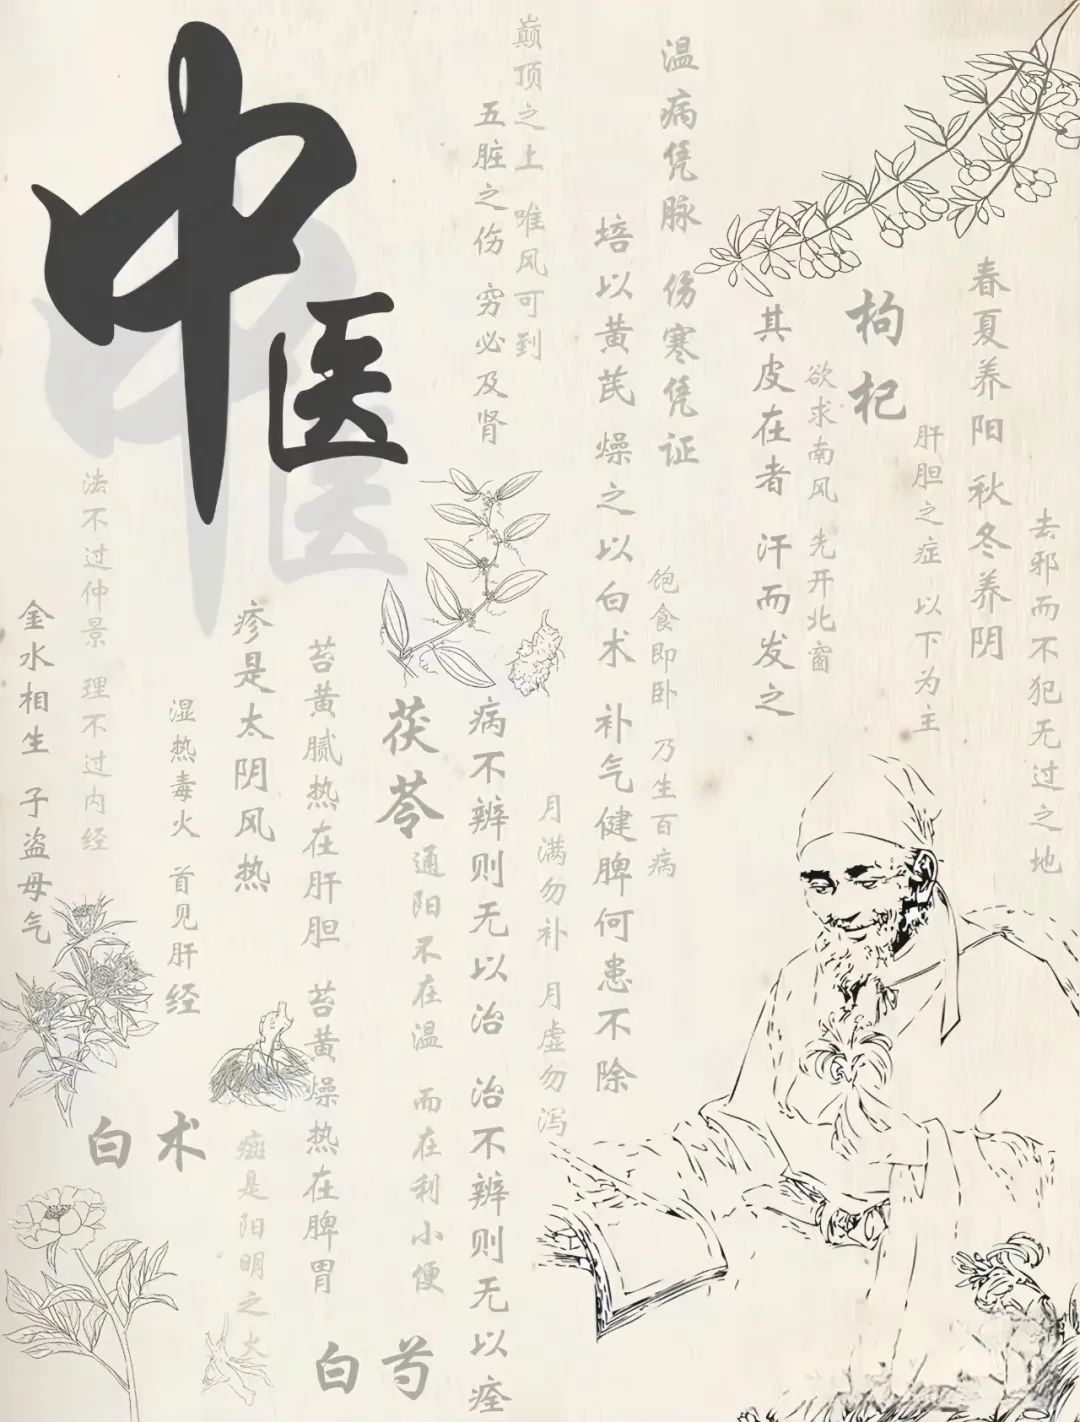 中医
巅顶之上 唯风可到
五脏之伤 穷必及肾
温病凭脉 伤寒凭证
培以黄芪 燥之以白术 补气健脾何患不除
饱食即卧 乃生百病
其皮在者 汗而发之
欲求南风 先开北窗
枸杞
肝胆之症 以下为主
春夏养阳 秋冬养阴
去邪而不犯无过之地
法不过仲景 理不过内经
金水相生 子盗母气
湿热毒火 首见肝经
疹是太阴风热
苔黄腻热在肝胆 苔黄燥热在脾胃
茯苓
通阳不在温 而在利小便
病不辨则无以治 治不辨则无以痊
月满勿补 月虚勿泻
白术
斑是阳明之火
白芍